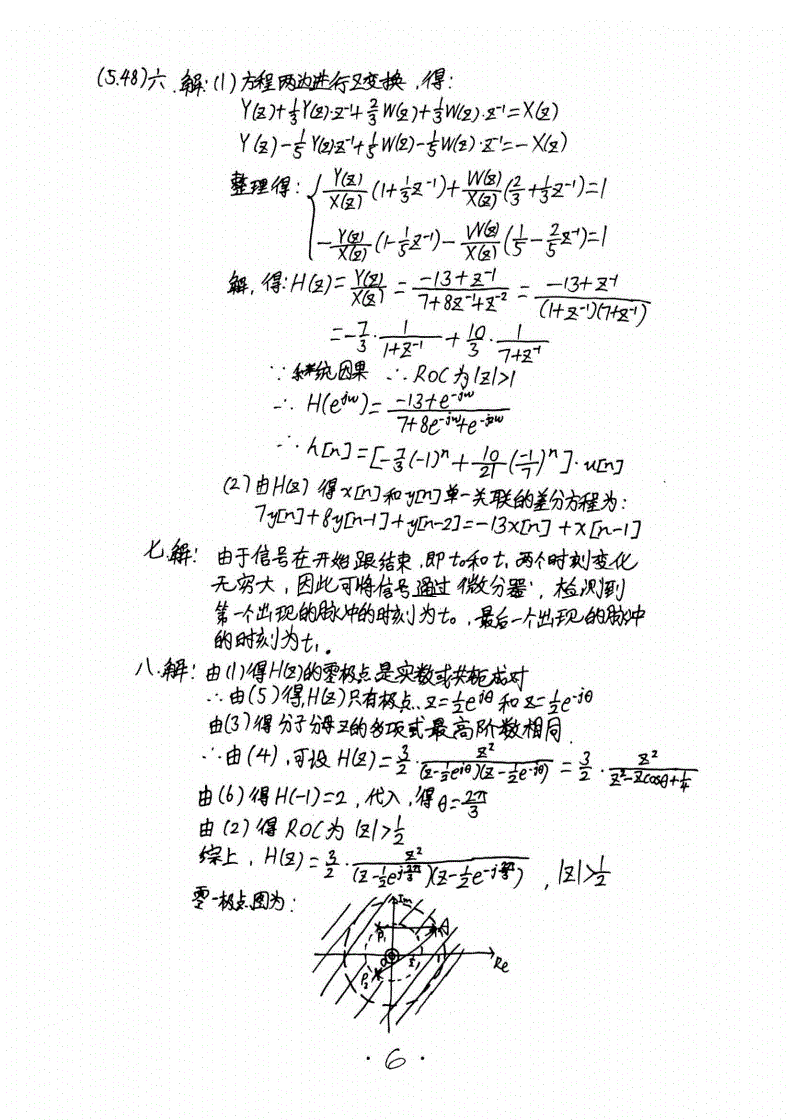 (5.48)六.解:(1)方程两边进行Z变换,得:
Y(z)+1/3Y(z)·z⁻¹+2/3W(z)+1/3W(z)·z⁻¹=X(z)
Y(z)-1/5Y(z)z⁻¹+1/5W(z)-1/5W(z)·z⁻¹=-X(z)
整理得: { Y(z)/X(z) (1+1/3z⁻¹)+W(z)/X(z) (2/3+1/3z⁻¹)=1
-Y(z)/X(z) (1-1/5z⁻¹)-W(z)/X(z) (1/5-2/5z⁻¹)=1
解,得:H(z)=Y(z)/X(z)=(-13+z⁻¹)/(7+8z⁻¹+z⁻²)=(-13+z⁻¹)/((1+z⁻¹)(7+z⁻¹))
=-7/3·1/(1+z⁻¹)+10/3·1/(7+z⁻¹)
∵系统因果 ∴ROC为|z|>1
∴H(e^{jw})=(-13+e^{-jw})/(7+8e^{-jw}+e^{-j2w})
∴h[n]=[-7/3(-1)ⁿ+10/21(-1/7)ⁿ]·u[n]
(2)由H(z)得x[n]和y[n]单一关联的差分方程为:
7y[n]+8y[n-1]+y[n-2]=-13x[n]+x[n-1]
七.解: 由于信号在开始跟结束,即t₀和t₁两个时刻变化
无穷大,因此可将信号通过微分器,检测到
第一个出现的脉冲的时刻为t₀,最后一个出现的脉冲
的时刻为t₁。
八.解: 由(1)得H(z)的零极点是实数或共轭成对
∴由(5)得,H(z)只有极点z=1/2e^{jθ}和z=1/2e^{-jθ}
由(3)得分子分母z的多项式最高阶数相同
∴由(4),可设H(z)=3/2·z²/((z-1/2e^{jθ})(z-1/2e^{-jθ}))=3/2·z²/(z²-zcosθ+1/4)
由(6)得H(-1)=2,代入,得θ=2π/3
由(2)得ROC为|z|>1/2
综上,H(z)=3/2·z²/((z-1/2e^{j2π/3})(z-1/2e^{-j2π/3})),|z|>1/2
零-极点图为:
Im
P₁
P₂
Re
·6·